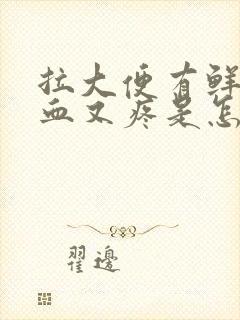 拉大便有鲜
血又疼是怎
翟边